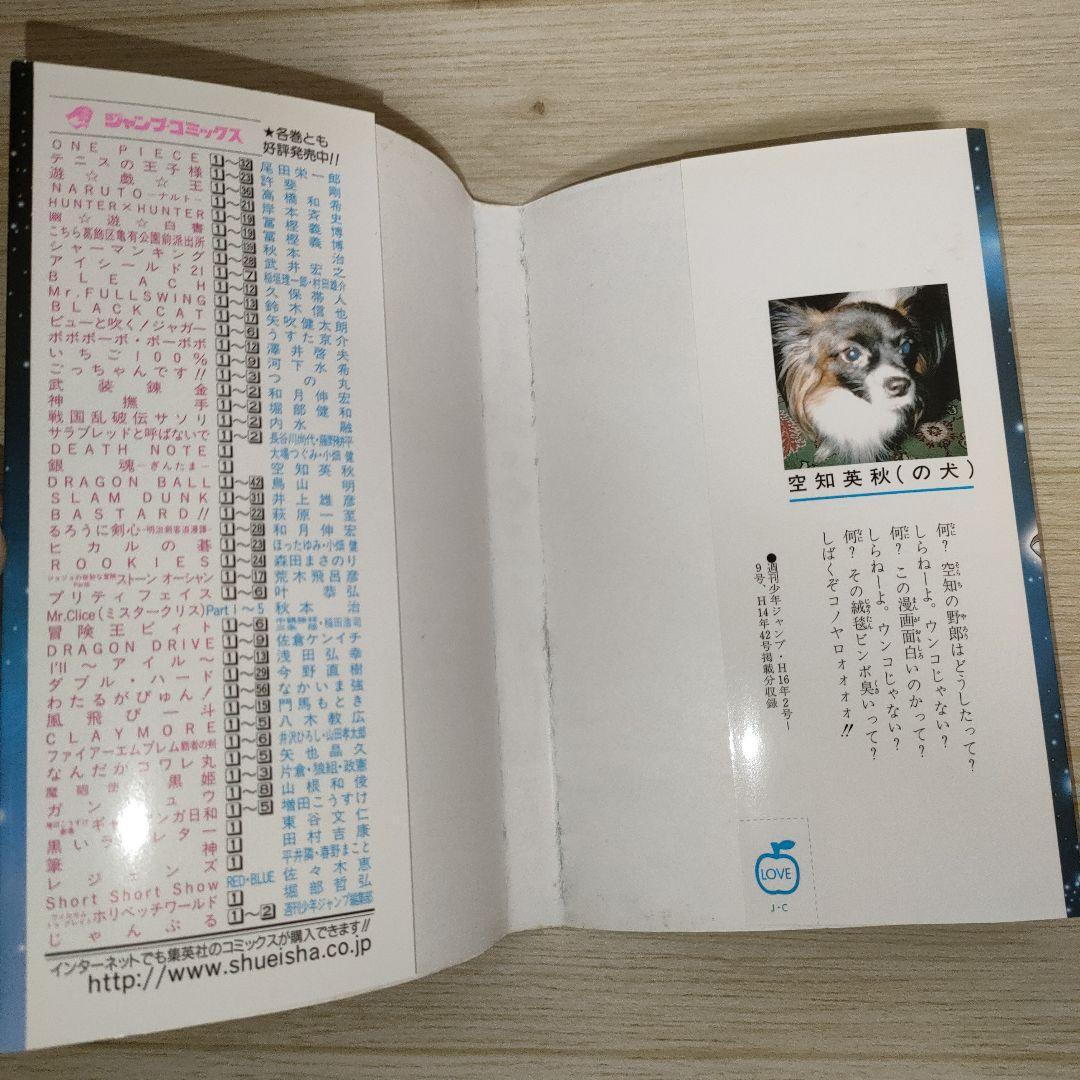 ジャンプ・コミックス
★各巻とも
好評発売中!!
ONE PIECE 1〜32 尾田栄一郎
テニスの王子様 1〜23 許斐剛
遊☆戯☆王 1〜36 高橋和希
NARUTO—ナルト— 1〜21 岸本斉史
HUNTER×HUNTER 1〜19 冨樫義博
幽☆遊☆白書 1〜19 冨樫義博
こちら葛飾区亀有公園前派出所 秋本治
シャーマンキング 1〜28 武井宏之
アイシールド21 1〜7 稲垣理一郎・村田雄介
BLEACH 1〜12 久保帯人
Mr.FULLSWING 1〜13 鈴木信也
BLACK CAT 1〜17 矢吹健太朗
ピューと吹く!ジャガー 1〜6 うすた京介
ボボボーボ・ボーボボ 1〜12 澤井啓夫
いちご100% 1〜9 河下水希
ごっちゃんです!! 1〜3 つの丸
武装錬金 1〜2 和月伸宏
神撫手 1〜2 堀部健和
戦国乱破伝サソリ 1〜2 内水融
サラブレッドと呼ばないで 1〜2 長谷川尚代・藤野耕平
DEATH NOTE 1 大場つぐみ・小畑健
銀魂—ぎんたま— 1 空知英秋
DRAGON BALL 1〜42 鳥山明
SLAM DUNK 1〜31 井上雄彦
BASTARD!! 1〜22 萩原一至
るろうに剣心—明治剣客浪漫譚— 1〜28 和月伸宏
ヒカルの碁 1〜23 ほったゆみ・小畑健
ROOKIES 1〜24 森田まさのり
ジョジョの奇妙な冒険 Part6 ストーンオーシャン 1〜17 荒木飛呂彦
プリティフェイス 1〜6 叶恭弘
Mr.Clice(ミスタークリス) Part 1〜5 秋本治
冒険王ビィト 1〜6 三条陸・稲田浩司
DRAGON DRIVE 1〜9 佐倉ケンイチ
I'll〜アイル〜 1〜13 浅田弘幸
ダブル・ハード 1〜29 今野直樹
わたるがぴゅん! 1〜56 なかいま強
風飛び一斗 1〜15 門馬もとき
CLAYMORE 1〜5 八木教広
ファイアーエムブレム覇者の剣 1〜6 井沢ひろし・山田孝太郎
なんだかコワレ丸 1〜5 矢也晶久
魔砲使い黒姫 1〜3 片倉・狼組・政憲
ガンリュウ 1〜8 山根和俊
増田こうすけ劇場 ギャグマンガ日和 1〜5 増田こうすけ
黒いラブレター 1 東谷文仁
筆神 1 田村吉康
レジェンズ 1 平井隣・春野まこと
Short Short Show RED・BLUE 佐々木恵
ホリベッチワールド 1 堀部哲弘
じゃんぷる 1〜2 週刊少年ジャンプ編集部
インターネットでも集英社のコミックスが購入できます!!
http://www.shueisha.co.jp
空知英秋(の犬)
何?空知の野郎はどうしたって?
しらねーよ。ウンコじゃない?
何?この漫画面白いのかって?
しらねーよ。ウンコじゃない?
何?その絨毯ビンボ臭いって?
しばくぞコノヤロォォォォ!!
●週刊少年ジャンプ・H16年2号〜
9号、H14年42号掲載分収録
LOVE
J・C